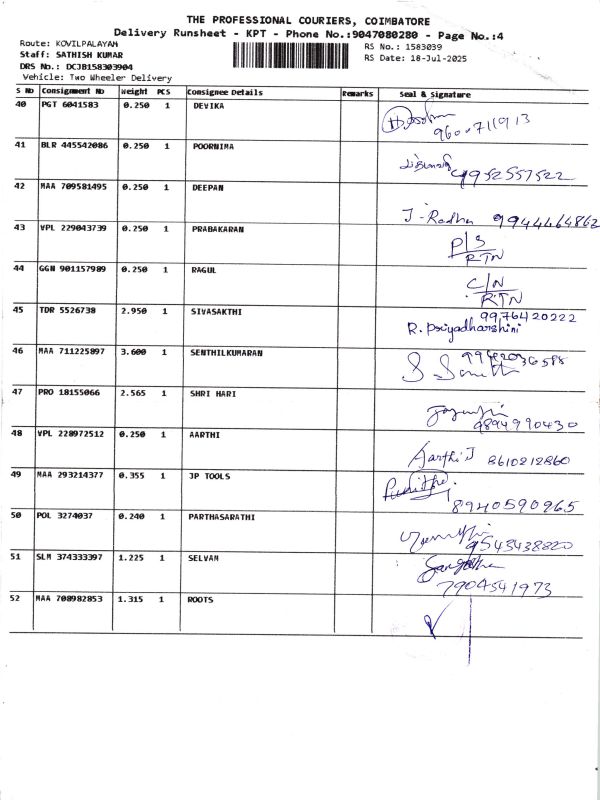 THE PROFESSIONAL COURIERS, COIMBATORE
Delivery Runsheet - KPT - Phone No.:9047080280 - Page No.:4
Route: KOVILPALAYAM
RS No.: 1583039
Staff: SATHISH KUMAR
RS Date: 18-Jul-2025
DRS No.: DCJB158303904
Vehicle: Two Wheeler Delivery
S No Consignment No Weight PCS Consignee Details Remarks Seal & Signature
40 PGT 6041583 0.250 1 DEVIKA
9600711913
41 BLR 445542086 0.250 1 POORNIMA
9952557522
42 MAA 709581495 0.250 1 DEEPAN
J-Radha 9944464862
43 VPL 229043739 0.250 1 PRABAKARAN
P/S
RTN
44 GGN 901157989 0.250 1 RAGUL
C/N
RTN
45 TDR 5526738 2.950 1 SIVASAKTHI
9976420222
R. Priyadharshini
46 MAA 711225897 3.600 1 SENTHILKUMARAN
47 PRO 18155066 2.565 1 SHRI HARI
9894990430
48 VPL 228972512 0.250 1 AARTHI
Aarthi J 8610212860
49 MAA 293214377 0.355 1 JP TOOLS
8940590965
50 POL 3274037 0.240 1 PARTHASARATHI
9543438820
51 SLM 374333397 1.225 1 SELVAM
7904541973
52 MAA 708982853 1.315 1 ROOTS